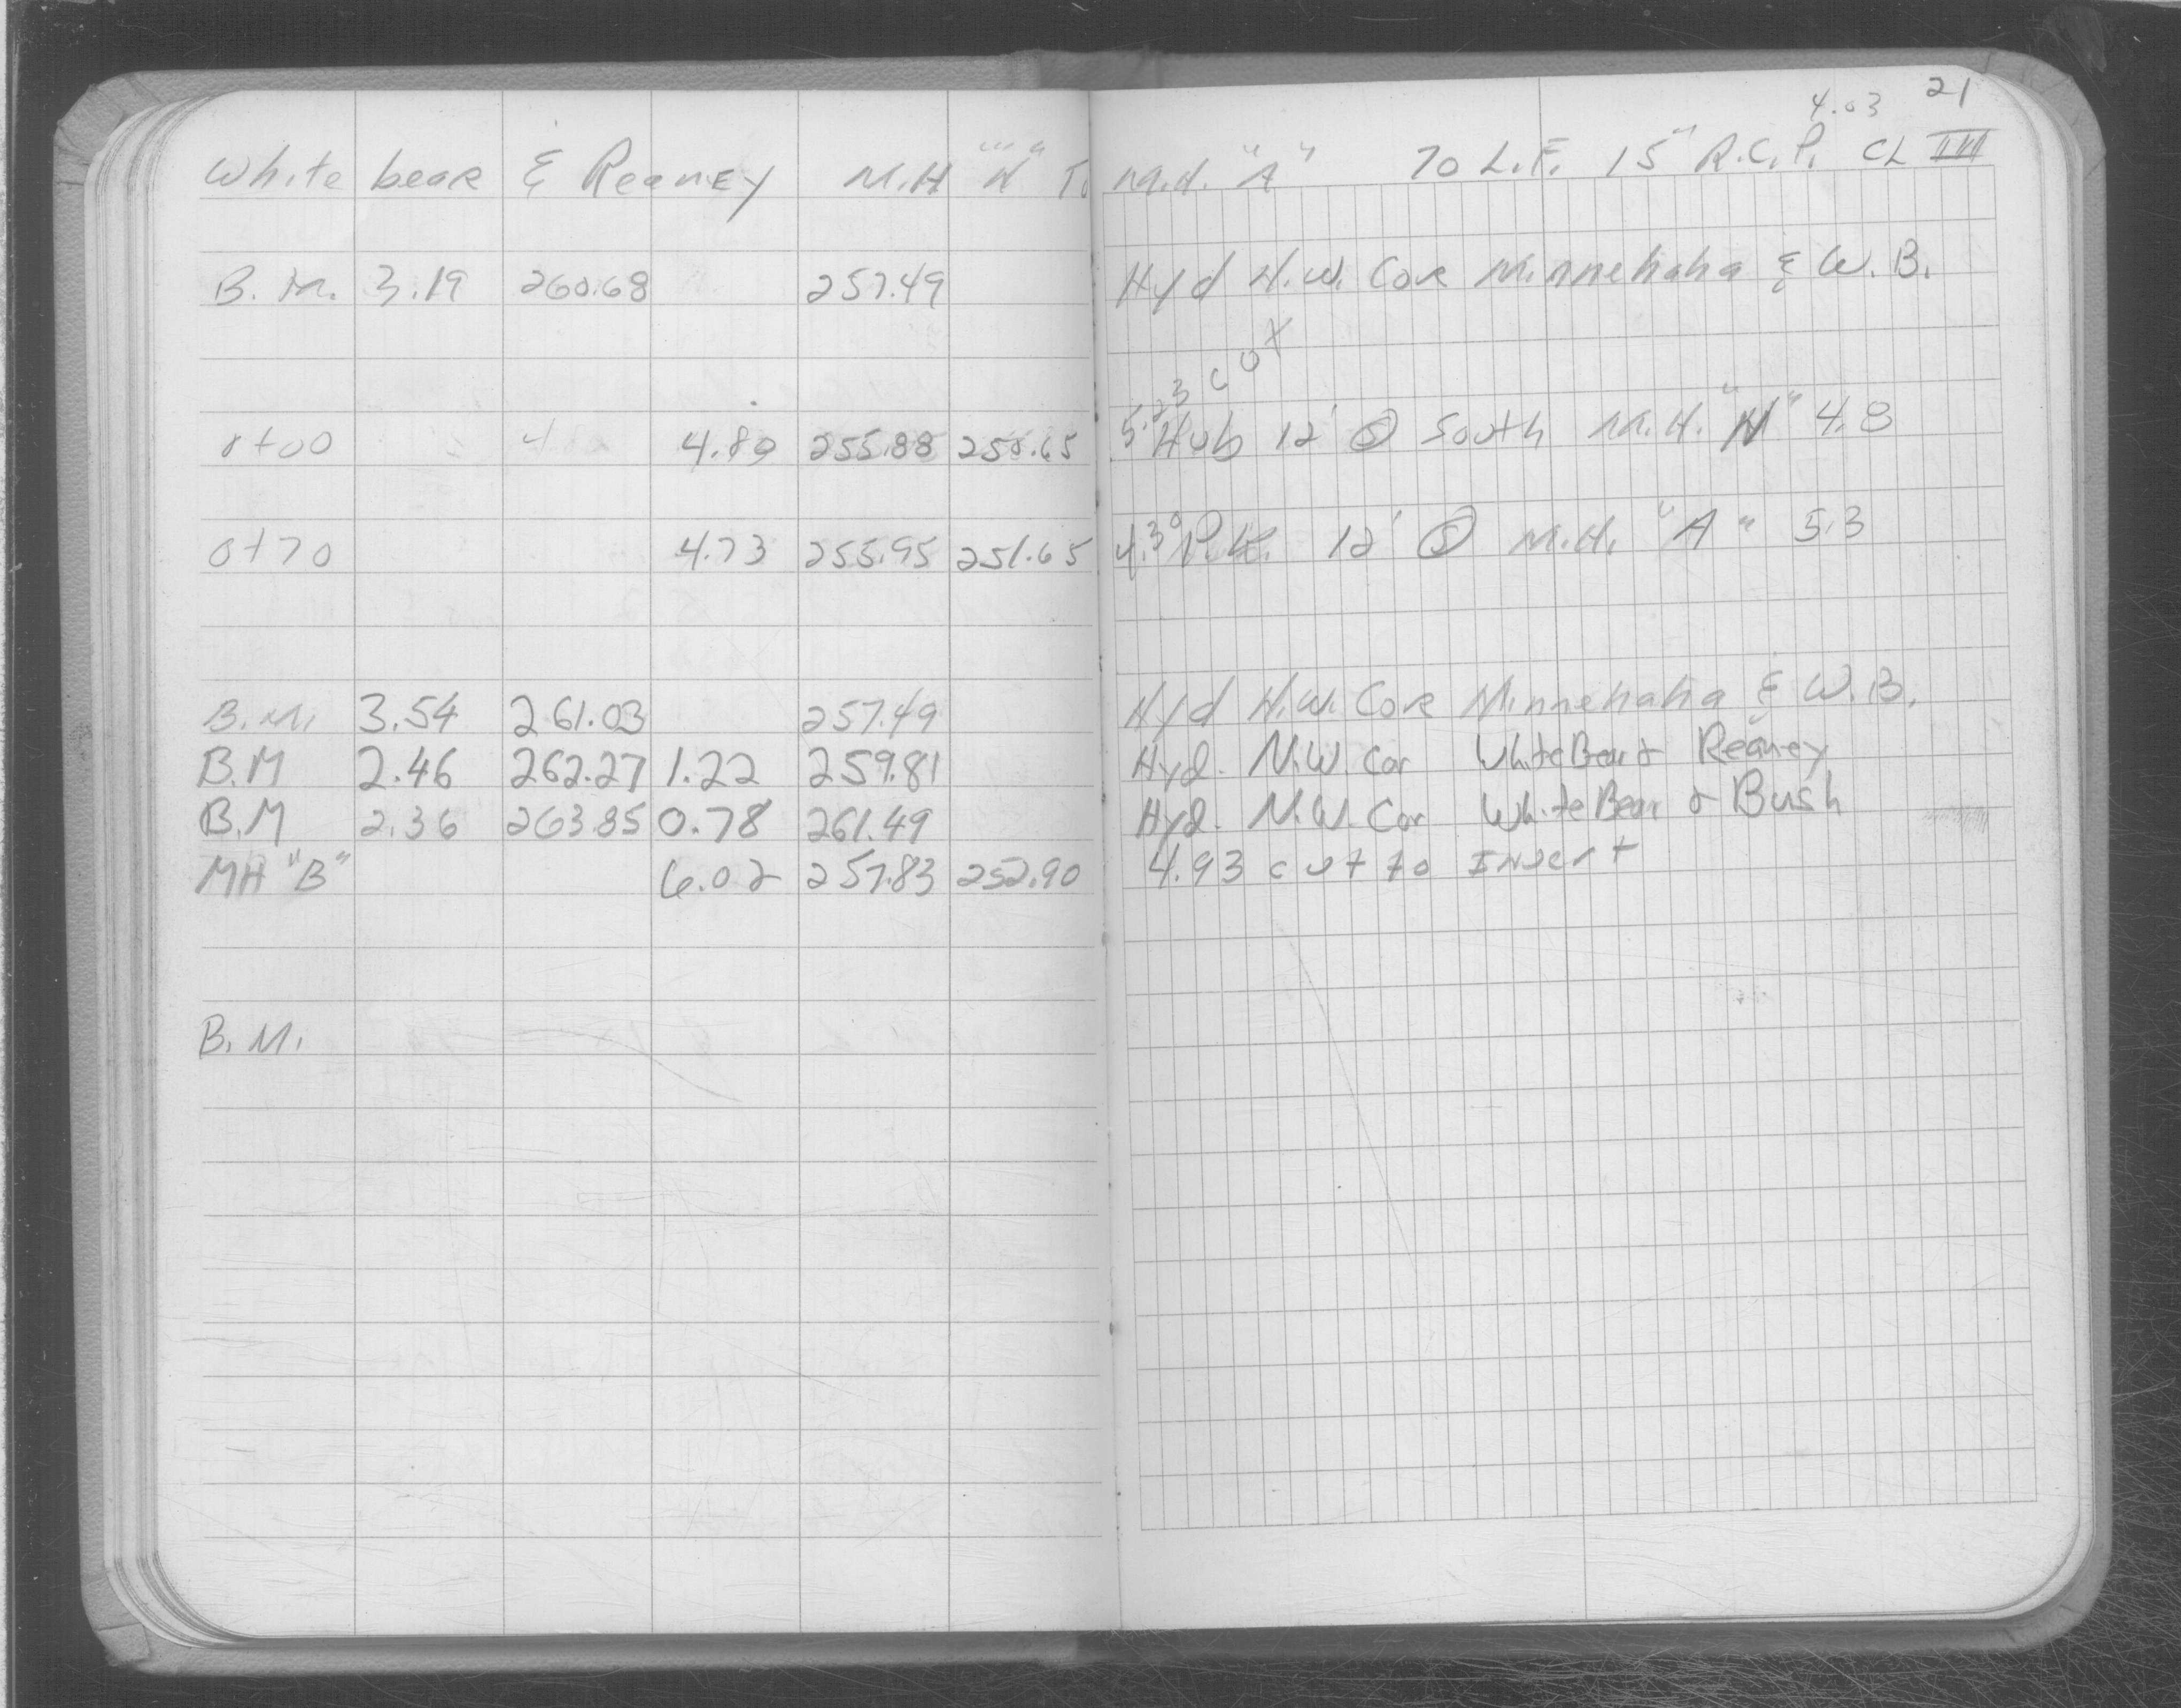 21
4.03
White bear & Reaney M.H "N" To M.H. "A" 70 L.F. 15" R.C.P. CL III
B.M. 3.19 260.68 257.49 Hyd N.W. Cor Minnehaha & W.B.
5.23 cut
0+00 4.80 255.88 250.65 Hub 12' @ South M.H. "N" 4.8
0+70 4.73 255.95 251.65 4.30 P.K. 12' @ M.H. "A" 5.3
B.M. 3.54 261.03 257.49 Hyd N.W. Cor Minnehaha & W.B.
B.M 2.46 262.27 1.22 259.81 Hyd. N.W. Cor White Bear & Reaney
B.M 2.36 263.85 0.78 261.49 Hyd. N.W. Cor White Bear & Bush
MH "B" 6.02 257.83 252.90 4.93 cut to Invert
B.M.